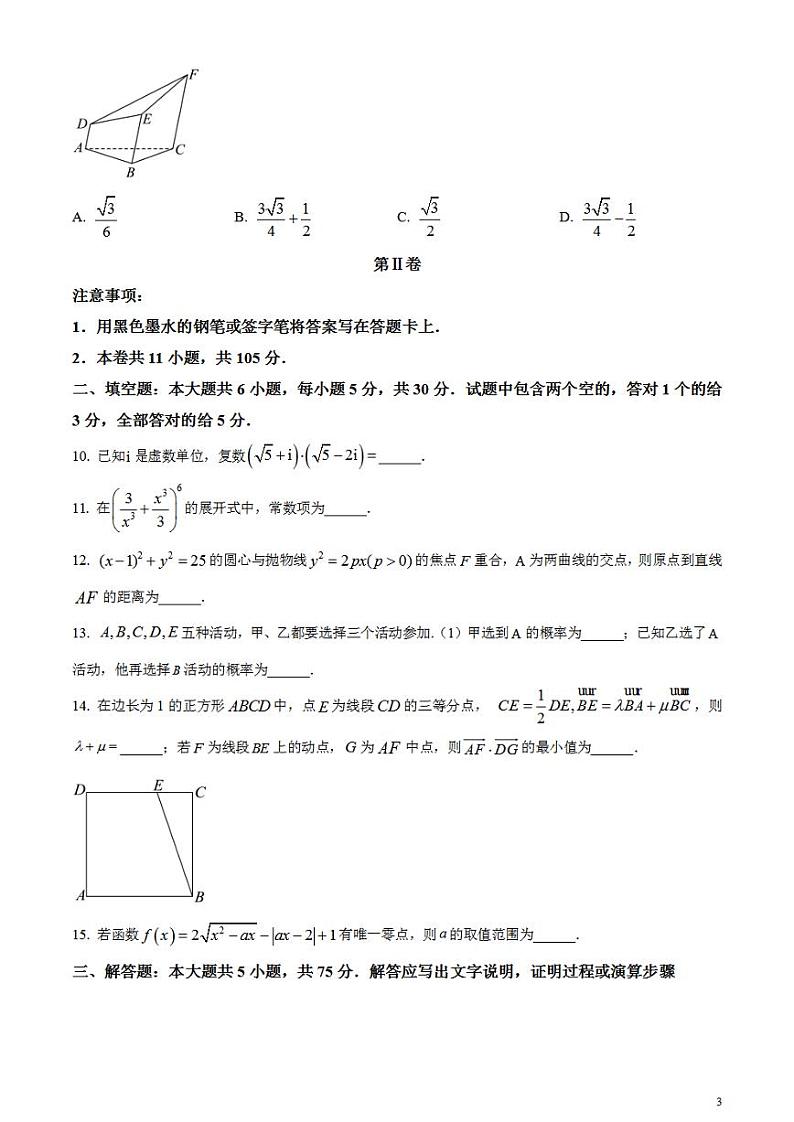 F
D
E
A
C
B
A. √3/6 B. 3√3/4 + 1/2 C. √3/2 D. 3√3/4 − 1/2
第Ⅱ卷
注意事项：
1．用黑色墨水的钢笔或签字笔将答案写在答题卡上．
2．本卷共 11 小题，共 105 分．
二、填空题：本大题共 6 小题，每小题 5 分，共 30 分．试题中包含两个空的，答对 1 个的给
3 分，全部答对的给 5 分．
10. 已知i是虚数单位，复数(√5+i)·(√5−2i)=______．
11. 在(3/x³ + x³/3)⁶的展开式中，常数项为______．
12. (x−1)²+y²=25的圆心与抛物线y²=2px(p>0)的焦点F重合，A为两曲线的交点，则原点到直线
AF的距离为______．
13. A,B,C,D,E五种活动，甲、乙都要选择三个活动参加.（1）甲选到A的概率为______；已知乙选了A
活动，他再选择B活动的概率为______．
14. 在边长为 1 的正方形ABCD中，点E为线段CD的三等分点， CE=1/2 DE,BE=λBA+μBC，则
λ+μ=______；若F为线段BE上的动点，G为AF中点，则AF·DG的最小值为______．
D E C
A B
15. 若函数f(x)=2√(x²−ax)−|ax−2|+1有唯一零点，则a的取值范围为______．
三、解答题：本大题共 5 小题，共 75 分．解答应写出文字说明，证明过程或演算步骤
3